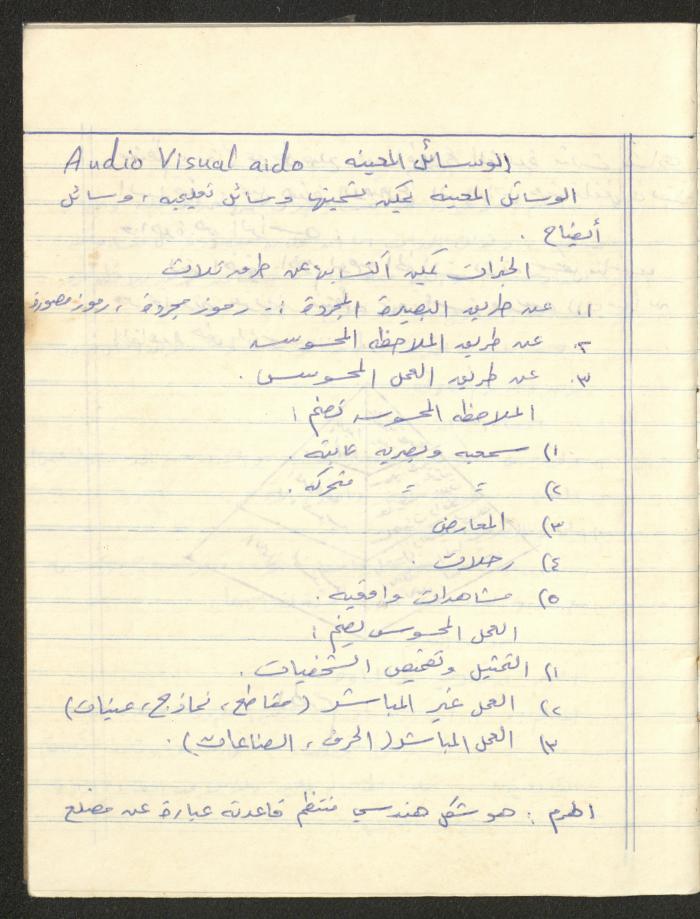 الوسائل المعينه Audio Visual aids
الوسائل المعينه يمكن تسميتها وسائل تعليميه، وسائل
أيضاح .
الخبرات يمكن اكتسابها عن طرق ثلاث
١. عن طريق البصيرة المجردة :- رموز مجردة ، رموز مصورة
٢. عن طريق الملاحظه المحسوسه
٣. عن طريق العمل المحسوس .
الملاحظه المحسوسه تضم :
١) سمعيه وبصريه ثابته .
٢) = = متحركه .
٣) المعارض
٤) رحلات .
٥) مشاهدات واقعيه .
العمل المحسوس يضم :
١) التمثيل وتقمص الشخصيات .
٢) العمل غير المباشر (مقاطع، نماذج، عينات)
٣) العمل المباشر (الحرف ، الصناعات) .
الهرم : هو شكل هندسي منتظم قاعدته عبارة عن مضلع